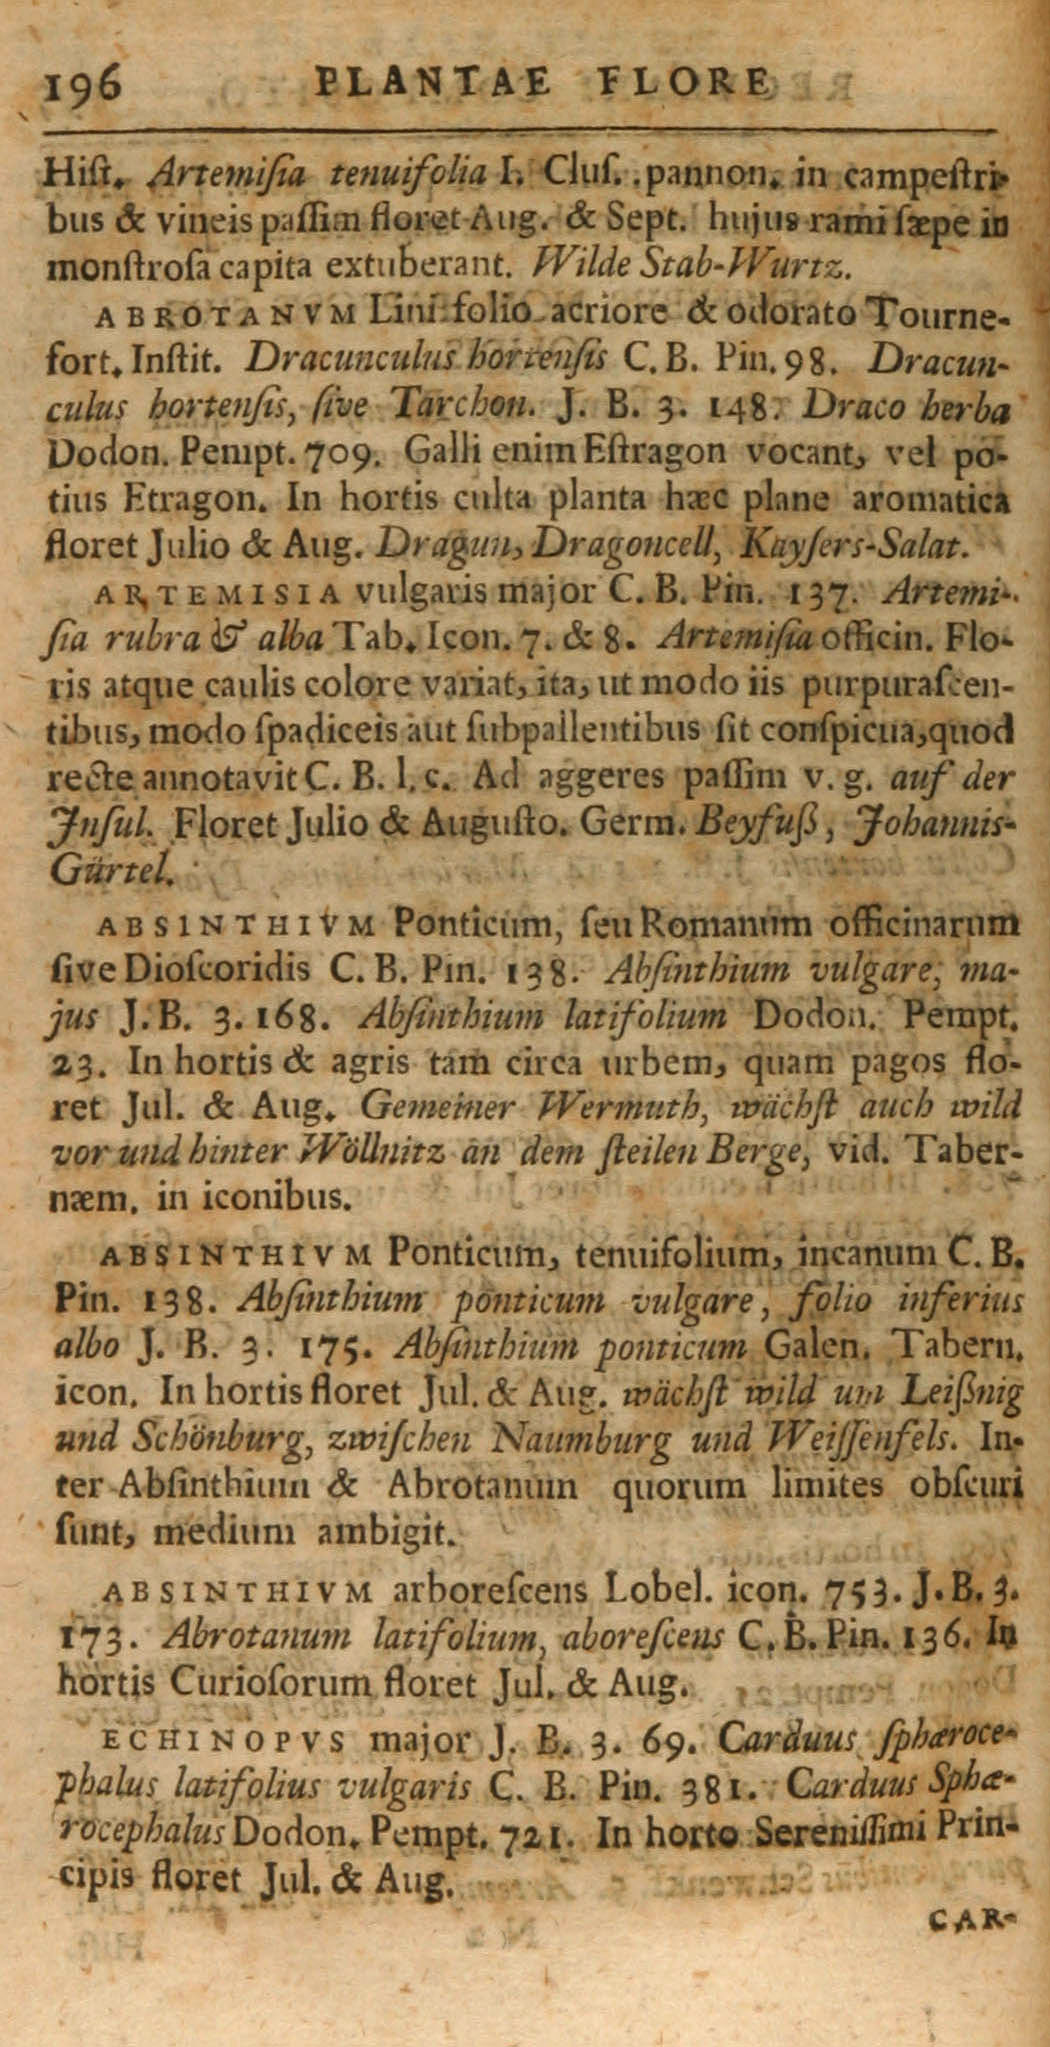 196 PLANTAE FLORE
Hiſt. Artemiſia tenuifolia I. Cluſ. pannon. in campeſtri-
bus & vineis paſſim floret Aug. & Sept. hujus rami ſæpe in
monſtroſa capita extuberant. Wilde Stab-Wurtz.
ABROTANVM Lini folio acriore & odorato Tourne-
fort. Inſtit. Dracunculus hortenſis C. B. Pin. 98. Dracun-
culus hortenſis, ſive Tarchon. J. B. 3. 148. Draco herba
Dodon. Pempt. 709. Galli enim Eſtragon vocant, vel po-
tius Etragon. In hortis culta planta hæc plane aromatica
floret Julio & Aug. Dragun, Dragoncell, Kayſers-Salat.
ARTEMISIA vulgaris major C. B. Pin. 137. Artemi-
ſia rubra & alba Tab. Icon. 7. & 8. Artemiſia officin. Flo-
ris atque caulis colore variat, ita, ut modo iis purpuraſcen-
tibus, modo ſpadiceis aut ſubpallentibus ſit conſpicua, quod
recte annotavit C. B. l. c. Ad aggeres paſſim v. g. auf der
Jnſul. Floret Julio & Auguſto. Germ. Beyfuß, Johannis-
Gürtel.
ABSINTHIVM Ponticum, ſeu Romanum officinarum
ſive Dioſcoridis C. B. Pin. 138. Abſinthium vulgare, ma-
jus J. B. 3. 168. Abſinthium latifolium Dodon. Pempt.
23. In hortis & agris tam circa urbem, quam pagos flo-
ret Jul. & Aug. Gemeiner Wermuth, wächſt auch wild
vor und hinter Wöllnitz an dem ſteilen Berge, vid. Taber-
næm. in iconibus.
ABSINTHIVM Ponticum, tenuifolium, incanum C. B.
Pin. 138. Abſinthium ponticum vulgare, folio inferius
albo J. B. 3. 175. Abſinthium ponticum Galen. Tabern.
icon. In hortis floret Jul. & Aug. wächſt wild um Leißnig
und Schönburg, zwiſchen Naumburg und Weiſſenfels. In-
ter Abſinthium & Abrotanum quorum limites obſcuri
ſunt, medium ambigit.
ABSINTHIVM arboreſcens Lobel. icon. 753. J. B. 3.
173. Abrotanum latifolium, aboreſcens C. B. Pin. 136. In
hortis Curioſorum floret Jul. & Aug.
ECHINOPVS major J. B. 3. 69. Carduus ſphæroce-
phalus latifolius vulgaris C. B. Pin. 381. Carduus Sphæ-
rocephalus Dodon. Pempt. 721. In horto Sereniſſimi Prin-
cipis floret Jul. & Aug.
CAR-